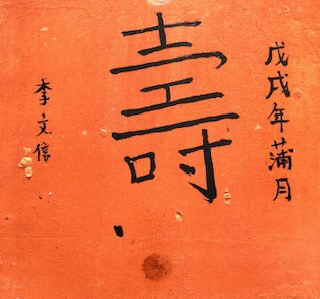 戊戌年蒲月
壽
李文信